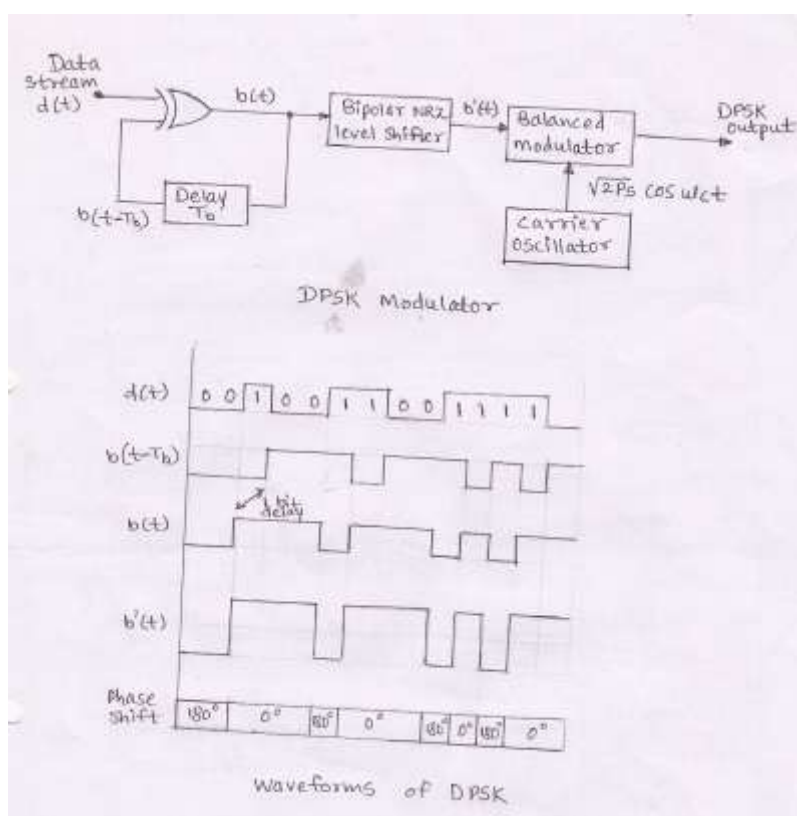 Data
stream
d(t)
b(t)
b(t-Tb)
Delay
Tb
Bipolar NRZ
level Shifter
b'(t)
Balanced
modulator
DPSK
output
√2Ps cos wct
Carrier
Oscillator
DPSK Modulator
d(t) 0 0 1 0 0 1 1 0 0 1 1 1 1
b(t-Tb)
1 bit
delay
b(t)
b'(t)
Phase
Shift 180° 0° 180° 0° 180° 0° 180° 0°
Waveforms of DPSK